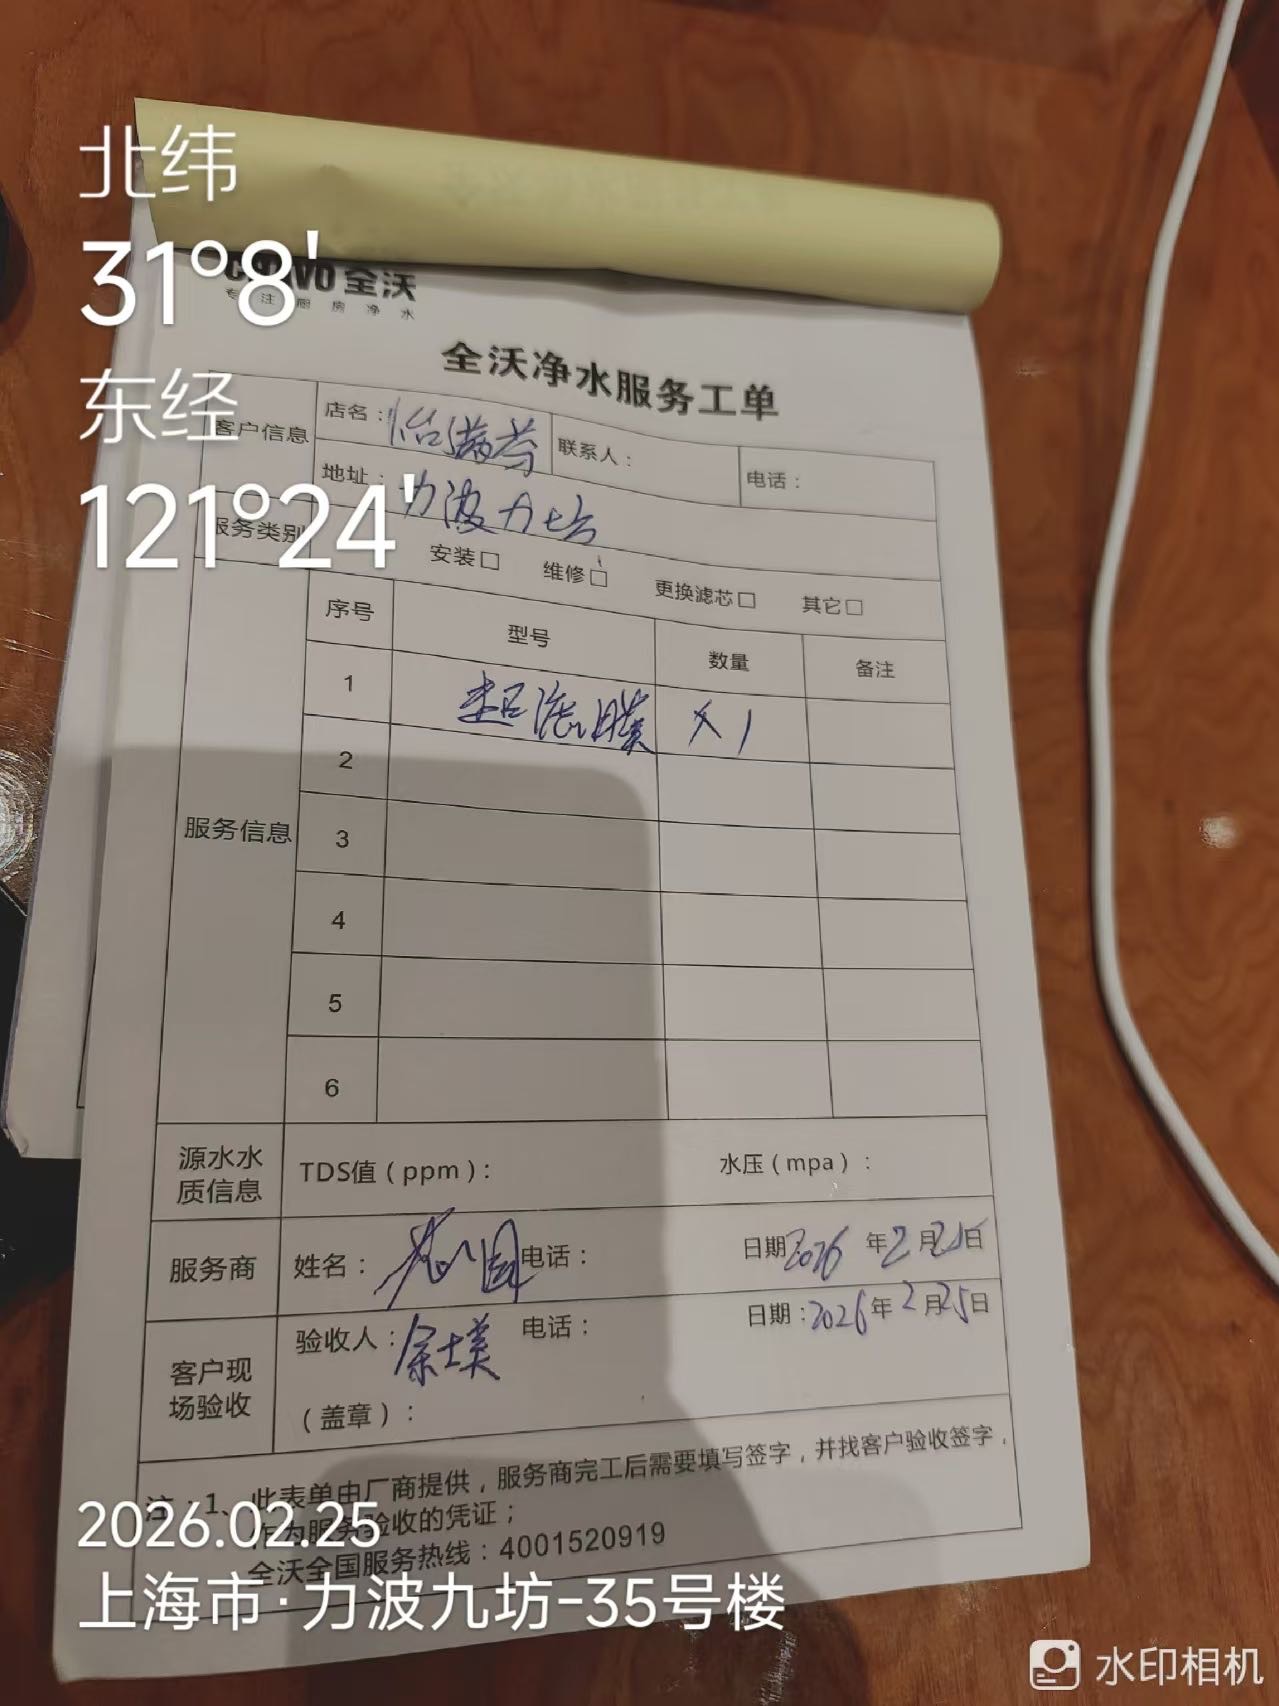 北纬
31°8'
东经
121°24'
全沃
专注厨房净水
全沃净水服务工单
客户信息
店名：怡满芳
联系人：
电话：
地址：力波九坊
服务类别
安装□ 维修□ 更换滤芯□ 其它□
服务信息
序号 型号 数量 备注
1 超滤膜 X1
2
3
4
5
6
源水水质信息
TDS值（ppm）： 水压（mpa）：
服务商
姓名： 电话： 日期2026年2月25日
客户现场验收
验收人：余士美 电话： 日期：2026年2月25日
（盖章）：
注：1、此表单由厂商提供，服务商完工后需要填写签字，并找客户验收签字，
作为服务验收的凭证；
全沃全国服务热线：4001520919
2026.02.25
上海市·力波九坊-35号楼
水印相机